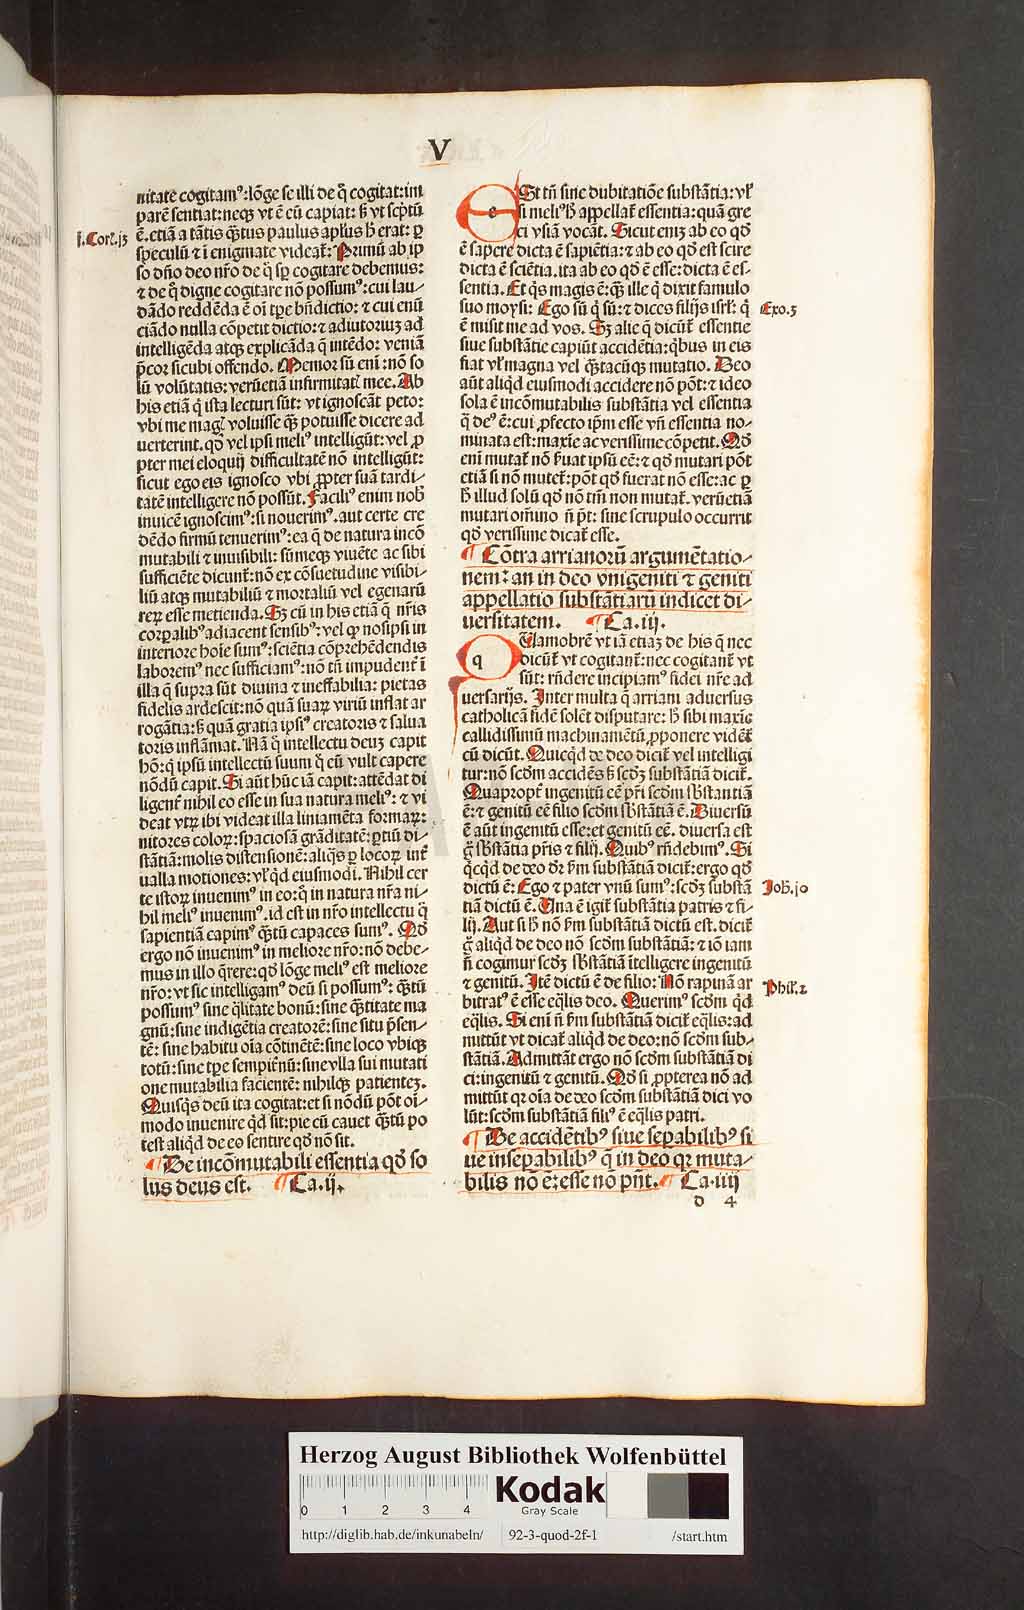 V
nitate cogitamꝰ: lõge se illi de q̃ cogitat: im
parẽ sentiat: neqꝫ vt ẽ eũ capiat: s̃ vt scp̃tũ
ẽ. etiã a tãtis q̃tus paulus apl̃us h̃ erat: ꝑ
.j. Cor̃. j3
speculũ ⁊ ĩ enigmate videat̃: Primũ ab ip̃
so dño deo nr̃o de q̃ sꝑ cogitare debemus:
⁊ de q̃ digne cogitare nõ possumꝰ: cui lau/
dãdo reddẽda ẽ oĩ tꝑe bñdictio: ⁊ cui enũ
ciãdo nulla cõpetit dictio: ⁊ adiutoriuꝫ ad
intelligẽda atqꝫ explicãda q̃ intẽdo: veniã
p̃cor sicubi offendo. Memor sũ eni: nõ so
lũ volũtatis: verũetiã infirmitat̃ mee. Ab
his etiã q̃ ista lecturi sũt: vt ignoscãt peto:
vbi me mag̃ voluisse qꝫ potuisse dicere ad
uerterint. qđ vel ipsi meliꝰ intelligũt: vel ꝓ
pter mei eloquij difficultatẽ nõ intelligũt:
sicut ego eis ignosco vbi ꝓpter suã tardi/
tatẽ intelligere nõ possũt. Faciliꝰ enim nob̃
inuicẽ ignoscimꝰ: si nouerimꝰ. aut certe cre
dẽdo firmũ tenuerimꝰ: ea q̃ de natura incõ
mutabili ⁊ inuisibili: sũmeqꝫ viuẽte ac sibi
sufficiẽte dicunt̃: nõ ex cõsuetudine visibi/
liũ atqꝫ mutabiliũ ⁊ mortaliũ vel egenarũ
reꝝ esse metienda. Sꝫ cũ in his etiã q̃ nr̃is
corꝑalibꝰ adiacent sensibꝰ: vel qđ nosipsi in
interiore hoĩe sumꝰ: sciẽtia cõprehẽdendis
laboremꝰ nec sufficiamꝰ: nõ tñ impudent̃ ĩ
illa q̃ supra sũt diuina ⁊ ineffabilia: pietas
fidelis ardescit: nõ quã suaꝝ viriũ inflat ar
rogãtia: s̃ quã gratia ipsiꝰ creatoris ⁊ salua
toris inflãmat. Nã q̃ intellectu deuꝫ capit
hõ: q̃ ipsũ intellectũ suum q̃ eũ vult capere
nõdũ capit. Si aũt hũc iã capit: attẽdat di
ligent̃ nihil eo esse in sua natura meliꝰ: ⁊ vi
deat vtꝝ ibi videat illa liniamẽta formaꝝ:
nitores coloꝝ: spaciosã grãditatẽ: ꝑtiũ di/
stãtiã: molis distensionẽ: aliq̃s ꝑ locoꝝ int̃
ualla motiones: vl̃ qđ eiusmodi. Nihil cer
te istoꝝ inuenimꝰ in eo: q̃ in natura nr̃a ni/
hil meliꝰ inuenimꝰ. id est in nr̃o intellectu q̃
sapientiã capimꝰ q̃tũ capaces sumꝰ. Qđ
ergo nõ inuenimꝰ in meliore nr̃o: nõ debe/
mus in illo q̃rere: qđ lõge meliꝰ est meliore
nr̃o: vt sic intelligamꝰ deũ si possumꝰ: q̃tũ
possumꝰ sine q̃litate bonũ: sine q̃titate ma
gnũ: sine indigẽtia creatorẽ: sine situ p̃sen/
tẽ: sine habitu oĩa cõtinẽtẽ: sine loco vbiqꝫ
totũ: sine tꝑe sempit̃nũ: sine vlla sui mutati
one mutabilia facientẽ: nihilqꝫ patienteꝫ.
Quisq̃s deũ ita cogitat: et si nõdũ põt oĩ/
modo inuenire q̃d sit: pie cũ cauet q̃tũ po
test aliqđ de eo sentire qđ nõ sit.
¶ De incõmutabili essentia qđ so
lus deus est. ¶ Ca. ij.
eSt tñ sine dubitatiõe substãtia: vl̃
si meliꝰ h̃ appellat̃ essentia: quã gre
ci vsiã vocãt. Sicut enim ab eo qđ
ẽ sapere dicta ẽ sapiẽtia: ⁊ ab eo qđ est scire
dicta ẽ sciẽtia. ita ab eo qđ ẽ esse: dicta ẽ es/
sentia. Et q̃s magis ẽ: qꝫ ille q̃ dixit famulo
suo moysi: Ego sũ q̃ sũ: ⁊ dices filijs isrl̃: q̃
Exo. 3
ẽ misit me ad vos. Sꝫ alie q̃ dicũt̃ essentie
siue substãtie capiũt accidẽtia: q̃bus in eis
fiat vl̃ magna vel q̃tacũqꝫ mutatio. Deo
aũt aliqđ eiusmodi accidere nõ põt: ⁊ ideo
sola ẽ incõmutabilis substãtia vel essentia
q̃ deꝰ ẽ: cui ꝓfecto ip̃m esse vñ essentia no/
minata est: maxĩe ac verissime cõpetit. Qđ
enĩ mutat̃ nõ s̃uat ipsũ eẽ: ⁊ qđ mutari põt
etiã si nõ mutet̃: põt qđ fuerat nõ esse: ac ꝑ
h̃ illud solũ qđ nõ tm̃ non mutat̃. verũetiã
mutari om̃ino ñ p̃t: sine scrupulo occurrit
qđ verissime dicat̃ esse.
¶ Cõtra arrianorũ argumẽtatio/
nem: an in deo vnigeniti ⁊ geniti
appellatio substãtiarũ indicet di/
uersitatem. ¶ Ca. iij.
qUamobrẽ vt iã etiaꝫ de his q̃ nec
dicũt̃ vt cogitant̃: nec cogitant̃ vt
sũt: rñdere incipiamꝰ fidei nr̃e ad
uersarijs. Inter multa q̃ arriani aduersus
catholicã fidẽ solẽt disputare: h̃ sibi maxĩe
callidissimũ machinamẽtũ ꝓponere vidẽt̃
cũ dicũt. Quicqđ de deo dicit̃ vel intelligi
tur: nõ scđm accidẽs s̃ scđꝫ substãtiã dicit̃.
Quapropt̃ ingenitũ eẽ pr̃i scđm sb̃stantiã
ẽ: ⁊ genitũ eẽ filio scđm sb̃stãtiã ẽ. Diuersũ
ẽ aũt ingenitũ esse: et genitũ eẽ. diuersa est
g̃ sb̃stãtia pr̃is ⁊ filij. Quibꝰ rñdebimꝰ. Si
q̃cqđ de deo dr̃ s̃m substãtiã dicit̃: ergo qđ
dictũ ẽ: Ego ⁊ pater vnũ sumꝰ: scđꝫ substã
Joh̃. jo
tiã dictũ ẽ. Una ẽ igit̃ substãtia patris ⁊ fi/
lij. Aut si h̃ nõ s̃m substãtiã dictũ est. dicit̃
g̃ aliqđ de deo nõ scđm substãtiã: ⁊ iõ iam
ñ cogimur scđꝫ sb̃stãtiã ĩtelligere ingenitũ
⁊ genitũ. Itẽ dictũ ẽ de filio: Nõ rapinã ar
Phil̃. 2
bitratꝰ ẽ esse eq̃lis deo. Querimꝰ scđm q̃d
eq̃lis. Si enĩ ñ s̃m substãtiã dicit̃ eq̃lis: ad
mittũt vt dicat̃ aliqđ de deo: nõ scđm sub/
stãtiã. Admittãt ergo nõ scđm substãtiã di
ci: ingenitũ ⁊ genitũ. Qđ si ꝓpterea nõ ad
mittũt qꝛ oĩa de deo scđm substãtiã dici vo
lũt: scđm substãtiã filiꝰ ẽ eq̃lis patri.
¶ De accidẽtibꝰ siue sepabilibꝰ si
ue insepabilibꝰ q̃ in deo qꝛ muta/
bilis nõ ẽ: esse nõ pñt. ¶ Ca. iiij
d 4
Herzog August Bibliothek Wolfenbüttel
0 1 2 3 4
Kodak
Gray Scale
http://diglib.hab.de/inkunabeln/ 92-3-quod-2f-1 /start.htm